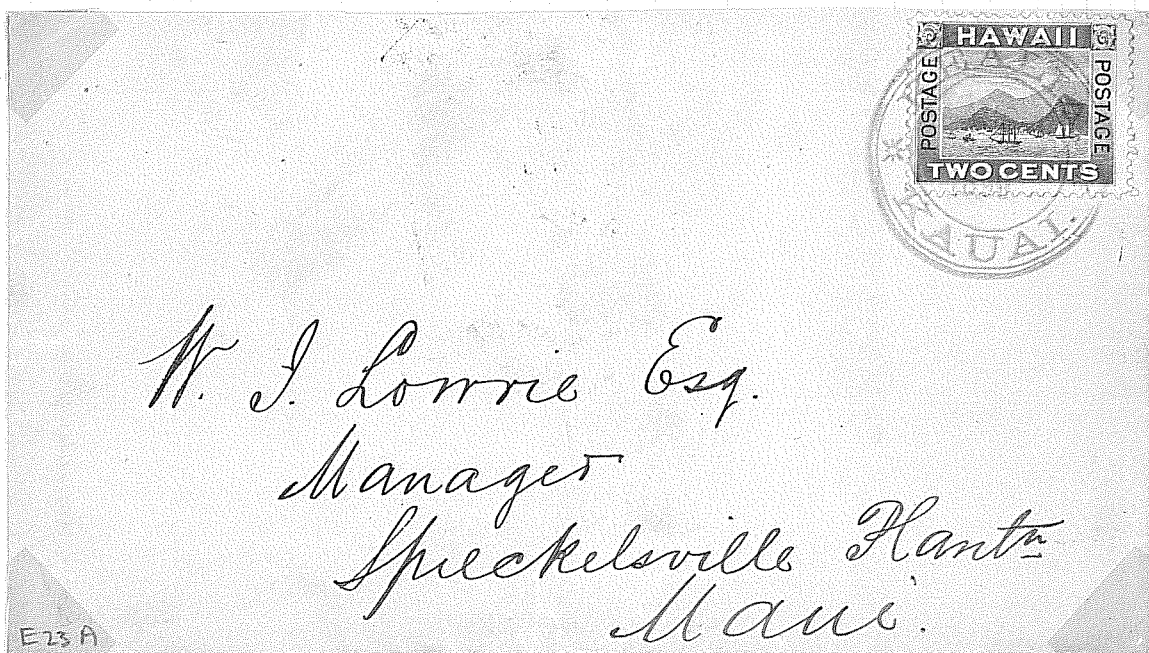 HAWAII
POSTAGE
POSTAGE
TWO CENTS
KAUAI.
W. J. Lowrie Esq.
Manager
Spreckelsville Plantn
Maui.
E23A